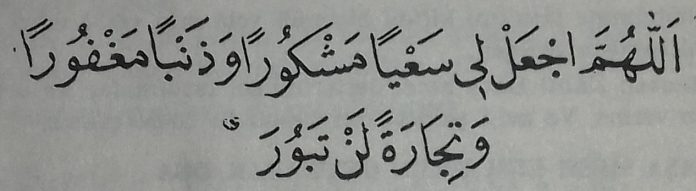 اَللّٰهُمَّ اجْعَلْ لِي سَعْيًا مَشْكُورًا وَذَنْبًا مَغْفُورًا
وَتِجَارَةً لَنْ تَبُورَ